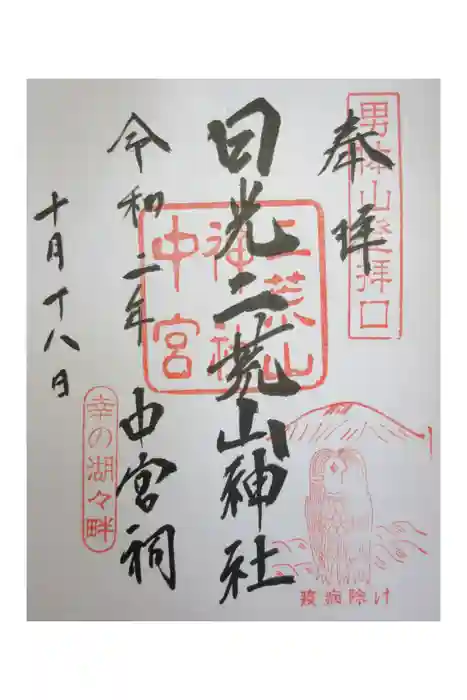 奉拝
男体山登拝口
日光二荒山神社
二荒山
神社
中宮
中宮祠
令和二年
十月十八日
幸の湖々畔
疫病除け